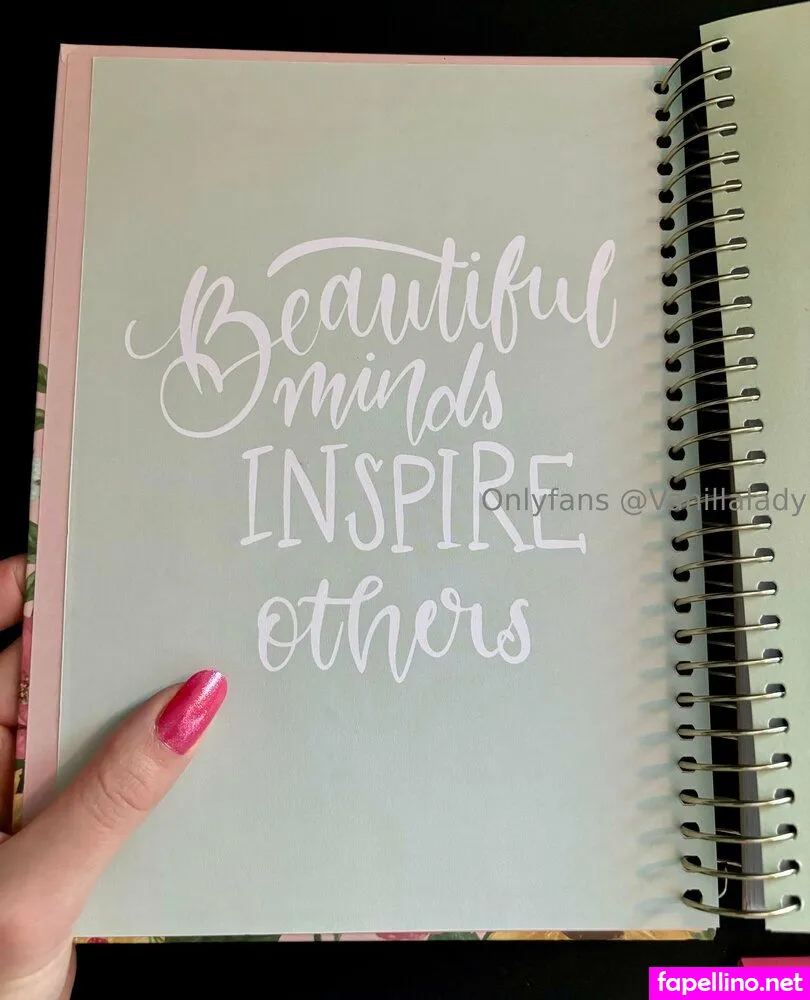 Beautiful
minds
INSPIRE
others
Onlyfans @Vanillalady
fapellino.net